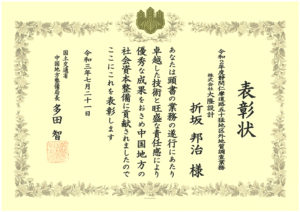 表彰状
令和2年度静間仁摩道路五十猛地区外地質調査業務
株式会社大隆設計
折坂 邦治 様
あなたは頭書の業務の遂行にあたり
卓越した技術と旺盛な責任感により
優秀な成果をおさめ中国地方の
社会資本整備に貢献されましたので
ここにこれを表彰します
令和三年七月二十一日
国土交通省
中国地方整備局長
多田 智